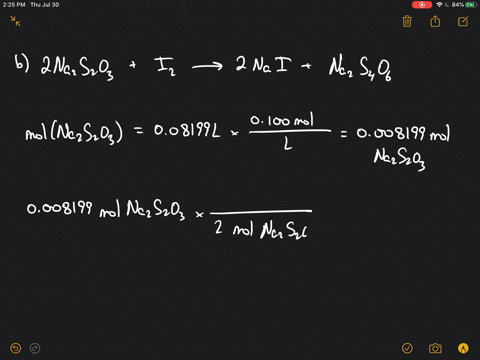 2:25 PM Thu Jul 30
84%
b) 2Na₂S₂O₃ + I₂ → 2NaI + Na₂S₄O₆
mol(Na₂S₂O₃) = 0.08199L × 0.100 mol / L = 0.008199 mol
Na₂S₂O₃
0.008199 mol Na₂S₂O₃ ×
2 mol Na₂S₂(